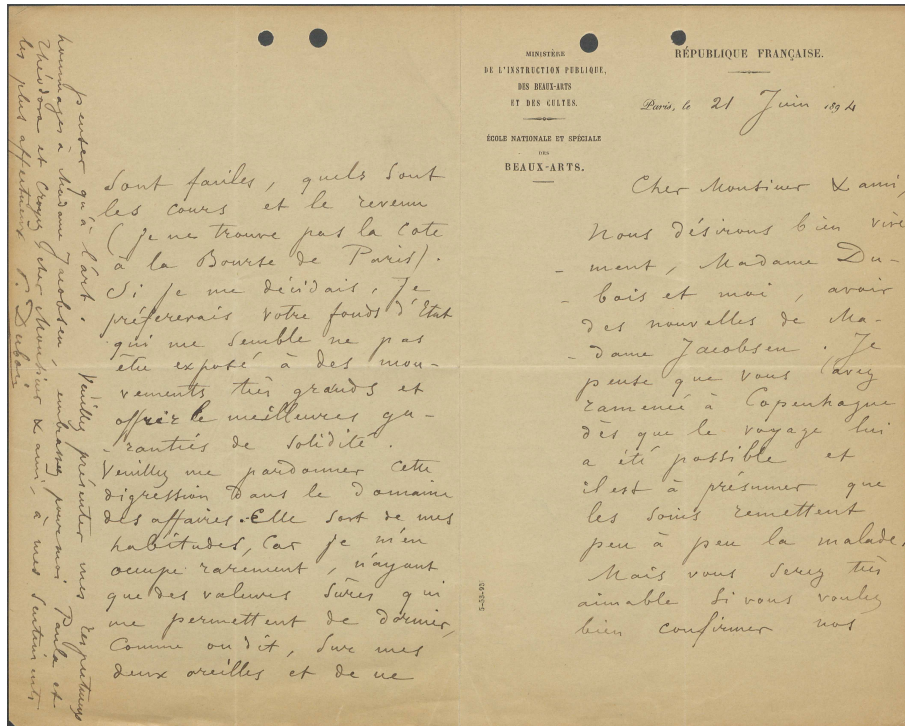 MINISTÈRE
DE L'INSTRUCTION PUBLIQUE,
DES BEAUX-ARTS
ET DES CULTES.
ÉCOLE NATIONALE ET SPÉCIALE
DES
BEAUX-ARTS.
RÉPUBLIQUE FRANÇAISE.
Paris, le 21 Juin 1894
Cher Monsieur & ami,
Nous désirons bien vive
ment, Madame Du-
bois et moi, avoir
des nouvelles de Ma-
dame Jacobsen. Je
pense que vous l'avez
ramenée à Copenhague
dès que le voyage lui
a été possible et
il est à présumer que
les soins remettent
peu à peu la malade.
Mais vous serez très
aimable si vous voulez
bien confirmer nos
sont faciles, quels sont
les cours et le revenu
(je ne trouve pas la cote
à la Bourse de Paris).
Si je me décidais, je
préférerais votre fonds d'Etat
qui me semble ne pas
être exposé à des mou-
vements très grands et
offrir le meilleures ga-
ranties de solidité.
Veuillez me pardonner cette
digression dans le domaine
des affaires. Elle sort de mes
habitudes, car je m'en
occupe rarement, n'ayant
que des valeurs sûres qui
me permettent de dormir,
comme on dit, sur mes
deux oreilles et de ne
penser qu'à l'art. Veuillez présenter mes respectueux
hommages à Madame Jacobsen, embrassez pour moi Paula et
Théodora et croyez, cher Monsieur & ami, à mes sentiments
les plus affectueux P. Dubois
5-53-93